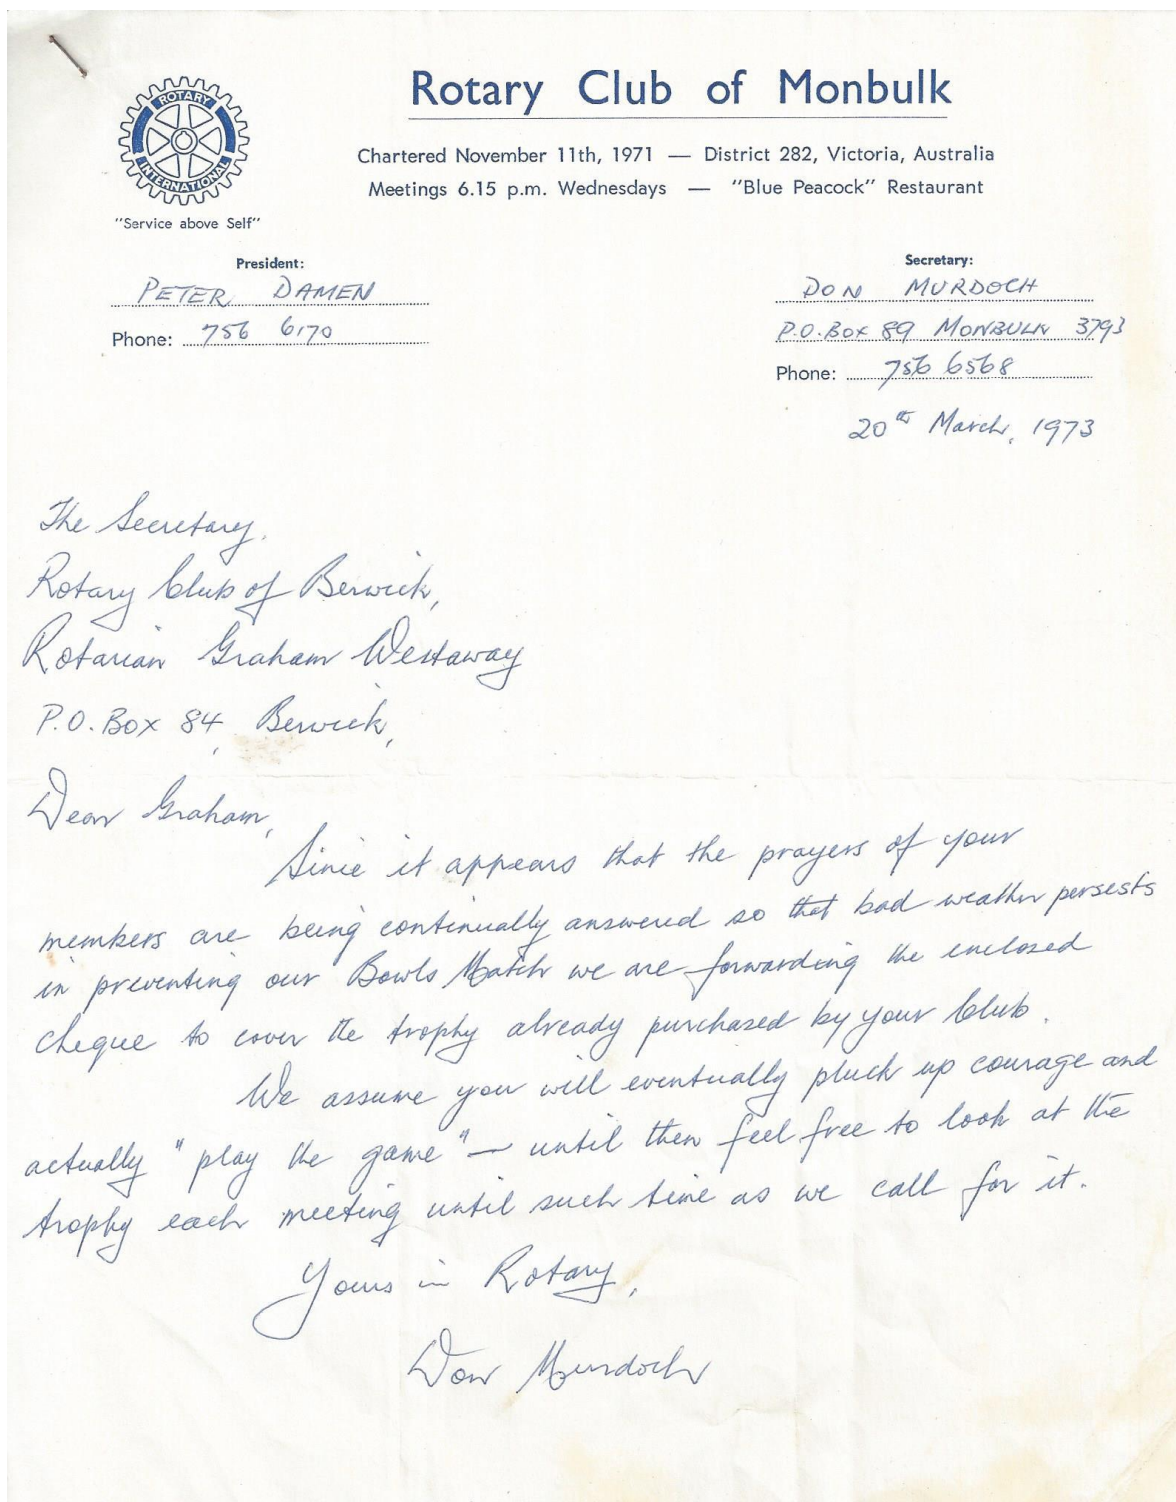 Rotary Club of Monbulk
ROTARY
INTERNATIONAL
Chartered November 11th, 1971 — District 282, Victoria, Australia
Meetings 6.15 p.m. Wednesdays — "Blue Peacock" Restaurant
"Service above Self"
President:
PETER DAMEN
Phone: 756 6170
Secretary:
DON MURDOCH
P.O. BOX 89 MONBULK 3793
Phone: 756 6568
20th March, 1973
The Secretary.
Rotary Club of Berwick,
Rotarian Graham Westaway
P.O. BOX 84, Berwick,
Dear Graham,
Since it appears that the prayers of your
members are being continually answered so that bad weather persests
in preventing our Bowls Match we are forwarding the enclosed
cheque to cover the trophy already purchased by your Club.
We assume you will eventually pluck up courage and
actually "play the game" — until then feel free to look at the
trophy each meeting until such time as we call for it.
Yours in Rotary,
Don Murdoch